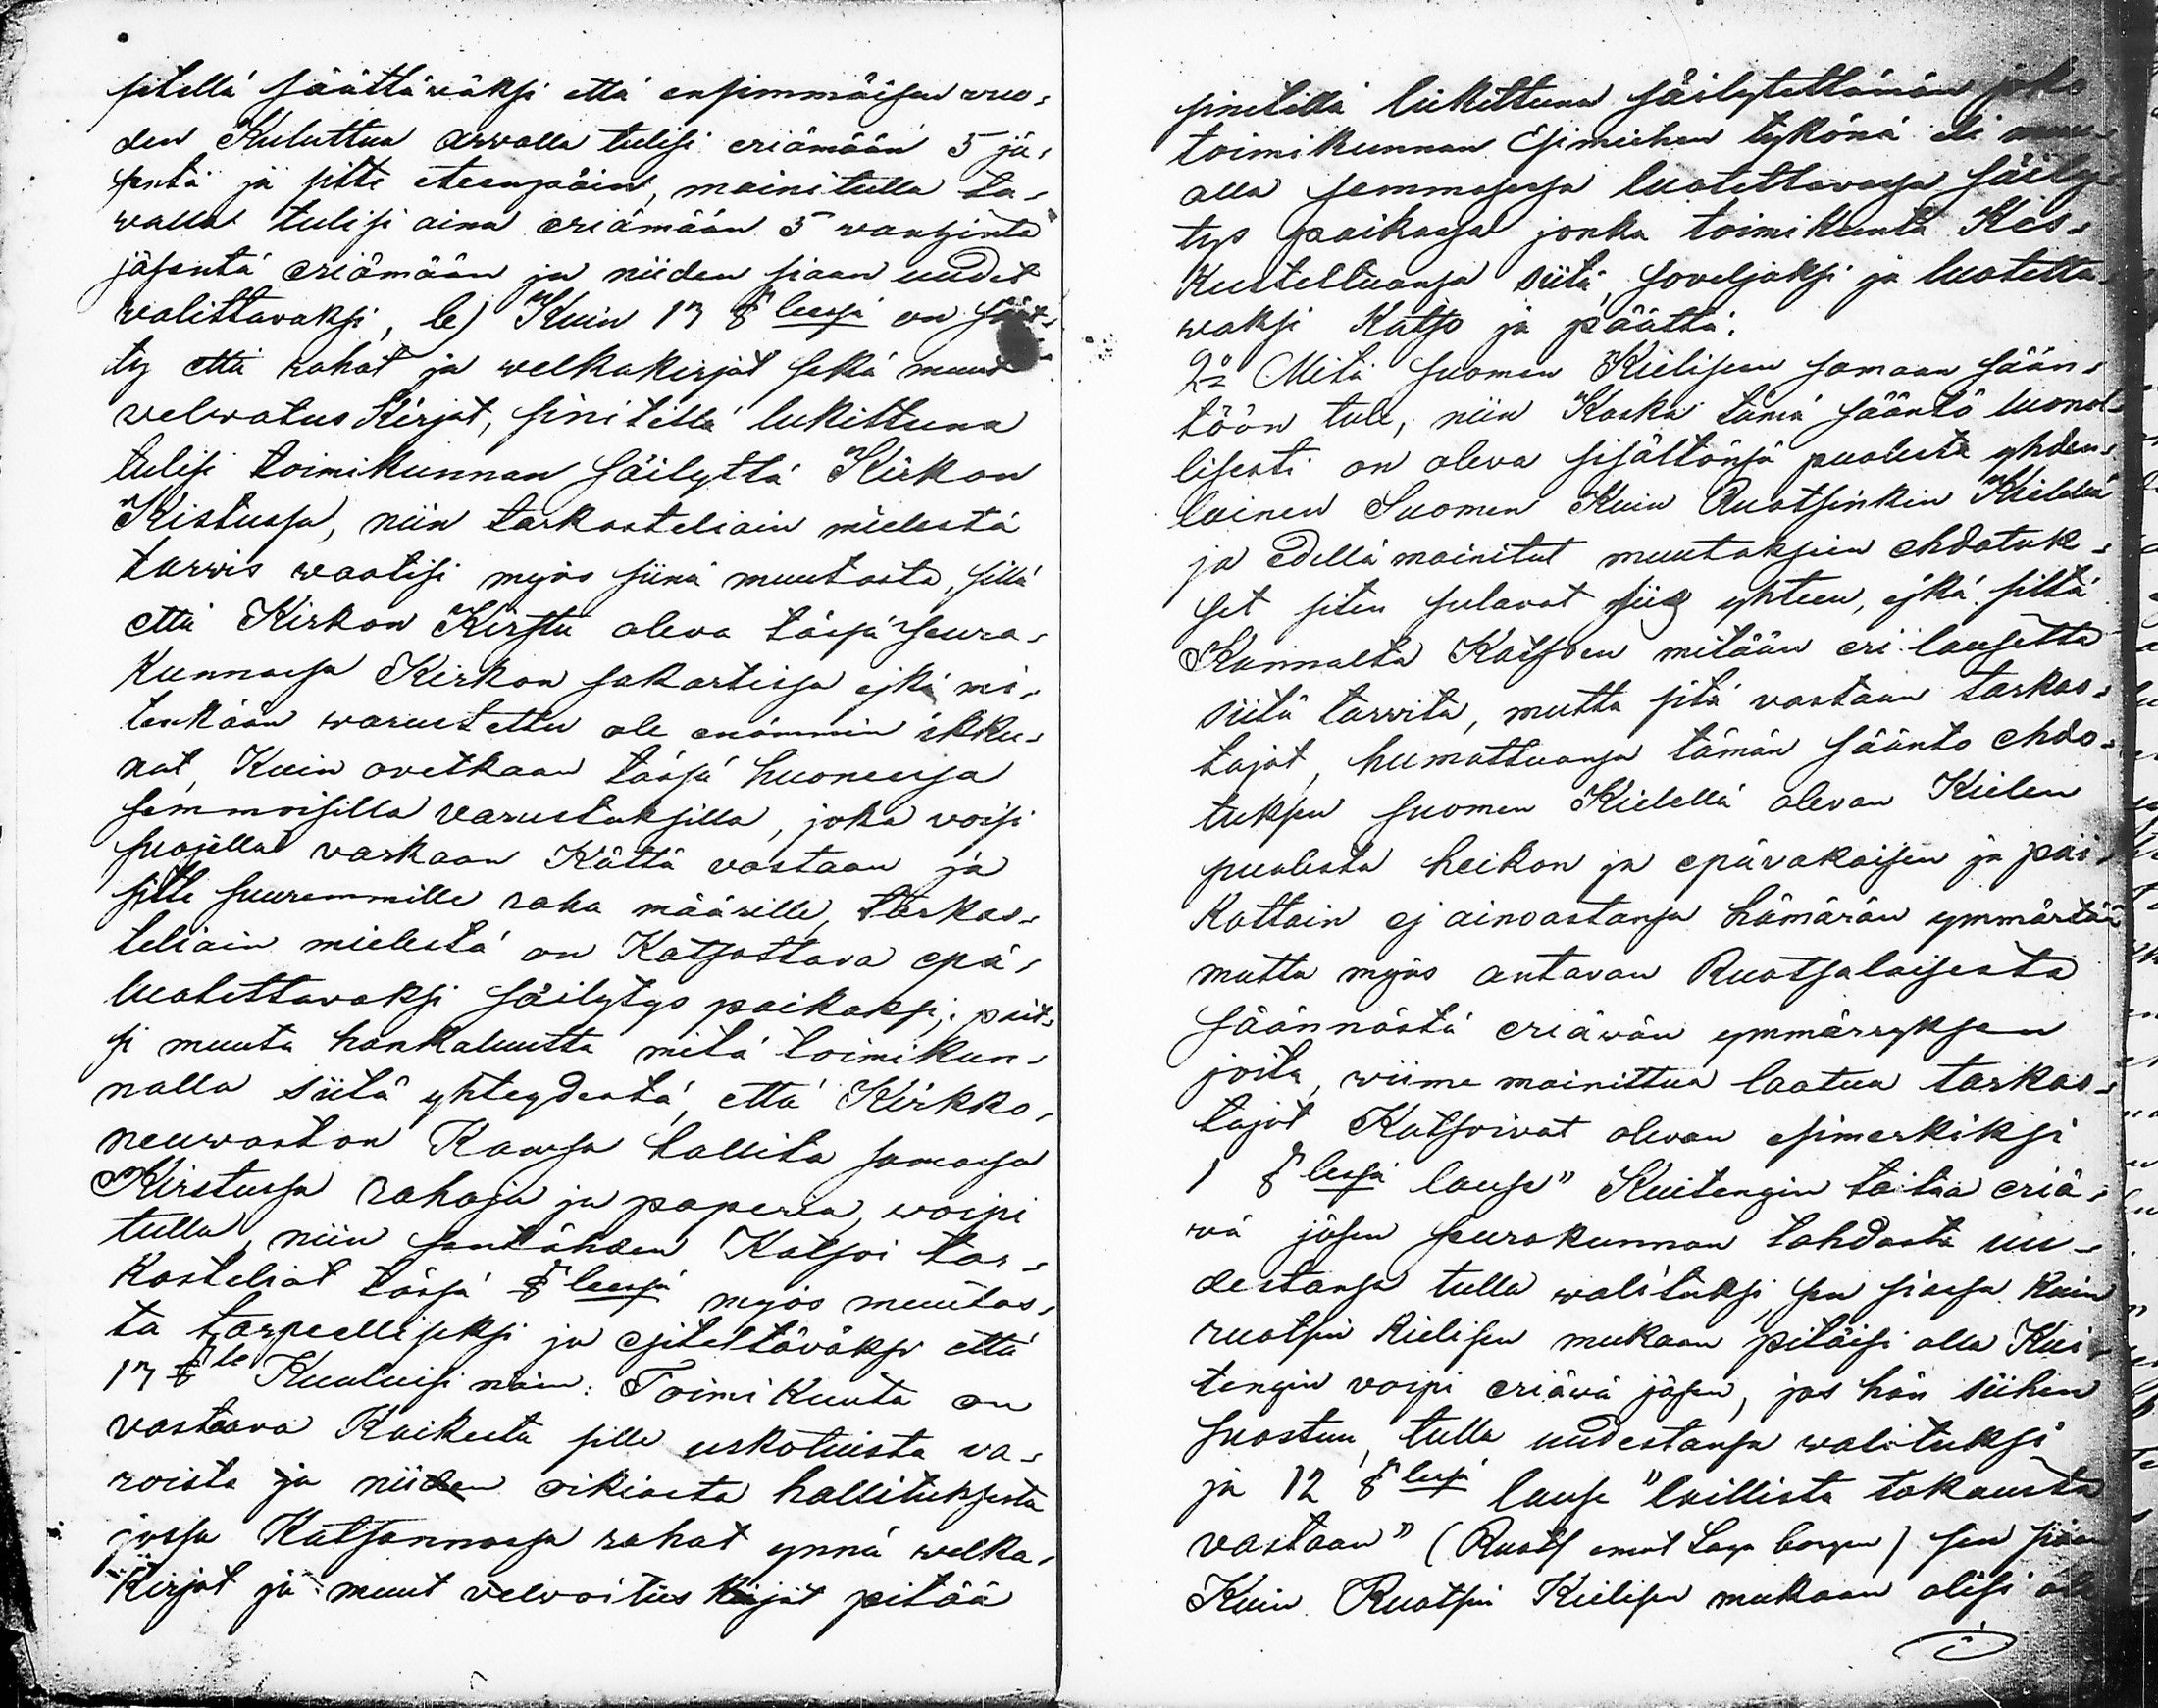 sitellä säättäväksi että ensimmäisen vuo-
den Kuluttua arwalla tulisi eriämään 5 jä-
sentä ja sitte eteenpäin, mainitulla ta-
walla tulisi aina eriämään 5 vanhinta
jäsentä eriämään ja niiden siaan uudet
valittavaksi, le) Kuin 17 § lessä on sää-
ty että rahat ja welkakirjat sekä muut
velwatus Kirjat, sinitillä lukittuna
tulisi toimikunnan säilyttä Kirkon
Kistussa, niin tarkasteliain mielestä
tarwis waatisi myös siinä muutosta, sillä
että Kirkon Kirstu oleva tässä seura-
kunnassa Kirkon sakastissa ejkä mi-
tenkään warustettu ole enämmin ikku-
nat, Kuin ovetkaan tässä huoneessa
semmoisilla varustuksilla, joka voisi
suojella varkaan Kättä vastaan ja
sitte suuremmille raha määrille, tarkas-
teliain mielestä on Katsottava epä-
luotettavaksi säilytys paikaksi; pait-
si muuta hankaluutta mitä toimikun-
nalla siitä yhteydestä, että Kirkko-
neuwoston Kanssa hallita samassa
Kirstussa rahoja ja paperia, woipi
tulla, niin sentähden Katsoi tar-
kasteliat tässä § lessä myös muutos-
ta tarpeelliseksi ja esiteltäväksi että
17 § le Kuuluisi näin: Toimi Kunta on
vastaava Kaikesta sille uskotuista va-
roista ja niiden oikiasta hallituksesta
jossa Katsannossa rahat ynnä welka-
Kirjat ja muut velwoitus Kirjat pitää
sinitillä lukittuna säilytettämän joko
toimikunnan Esimiehen tykönä eli muu-
alla semmosessa luotettavassa säily-
tys paikassa jonka toimikunta Kes-
kusteltuansa siitä, soveljaksi ja luotetta-
waksi Katso ja päättä.
2o Mitä suomen Kielisen samaan sään-
töön tule, niin Koska tämä sääntö luonol-
lisesti on oleva sisältönsä puolesta yhden-
lainen Suomen Kuin Ruotsinkin Kielellä
ja edellä mainitut muutoksien ehdotuk-
set siten sulavat yhteen, ejkä siltä
Kannalta Katsoen mitään eri lausetta
siitä tarvita, mutta sitä vastaan tarkas-
tajat, humattuansa tämän säänto ehdo-
tuksen suomen Kielellä olevan Kielen
puolesta heikon ja epävakaisen ja pai-
Kottain ej ainoastansa hämärän ymmärtää
mutta myös antavan Ruotsalaisesta
säännöstä eriävän ymmärryksen
joita, wiime mainittua laatua tarkas-
tajat Katsoivat olevan esimerkiksi
1 § lessä lause" Kuitengin taitaa eriä-
vä jäsen seurakunnan tahdosta uu-
destansa tulla walituksi, sen siassa kuin
ruotsin kielisen mukaan pitäisi olla Kui-
tengin voipi eriäwä jäsen, jos hän siihen
suostuu, tulla uudestansa walituksi
ja 12 § lessä lause "laillista takausta
vastaan" (Ruots emot laga borgen) sen siaan
Kuin Ruotsin Kielisen mukaan olisi ole